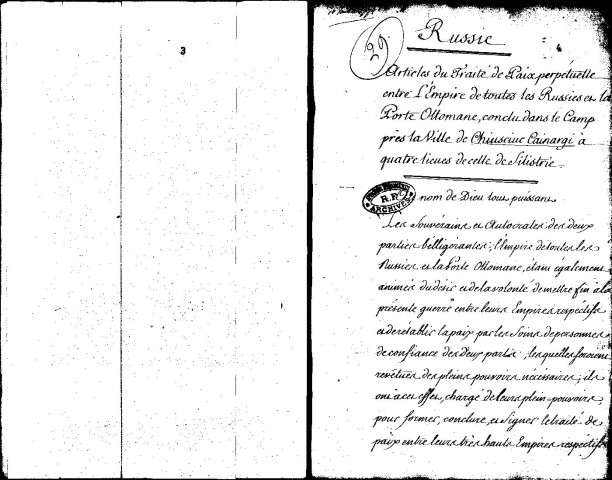 3
29.
Russie
Articles du Traité de Paix perpetuelle
entre L'Empire de toutes les Russies et la
Porte Ottomane, conclu dans le Camp
près la Ville de Chiusciuc Cainargi à
quatre lieues de celle de Silistrie.
R.F.
ARCHIVES
nom de Dieu tout puissant
Les Souverains et Autocrates des deux
parties belligérantes; l'Empire de toutes les
Russies et la Porte Ottomane, étant également
animés du désir et de la volonté de mettre fin à la
présente guerre entre leurs Empires respectifs
et de rétablir la paix par les soins de personnes
de confiance des deux partis, lesquelles seroient
revetues des pleins pouvoirs nécessaires; ils
ont à cet effet, chargé de leurs plein-pouvoirs
pour former, conclure, et signer le traité de
paix entre leurs très hauts Empires respectifs